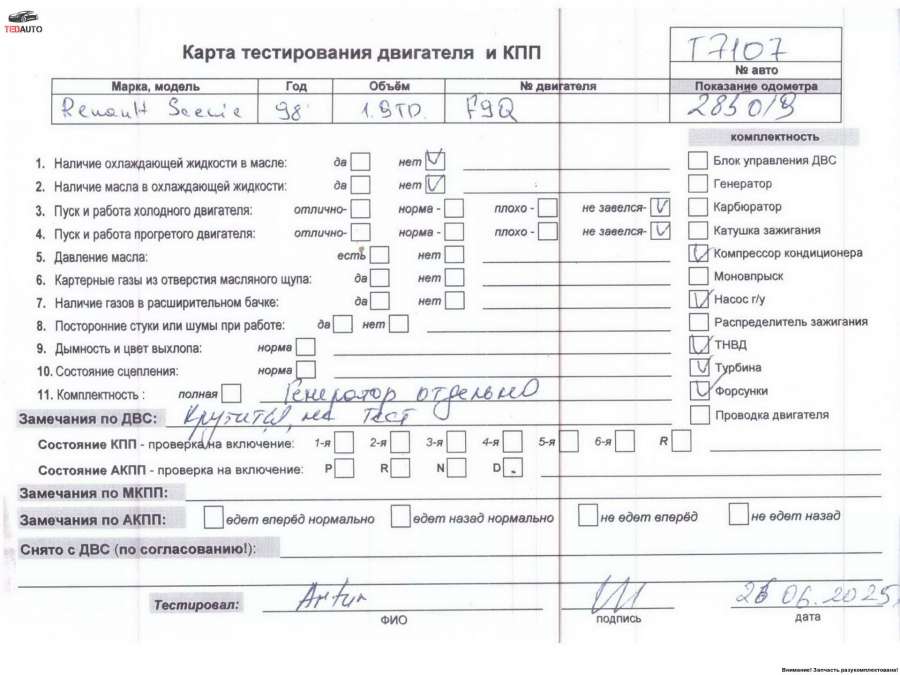 TEDAUTO
Карта тестирования двигателя и КПП
T7107
№ авто
Марка, модель Год Объём № двигателя Показание одометра
Renault Scenic 98 1.9TD. F9Q
комплектность
1. Наличие охлаждающей жидкости в масле: да нет Блок управления ДВС
2. Наличие масла в охлаждающей жидкости: да нет Генератор
3. Пуск и работа холодного двигателя: отлично- норма - плохо - не завелся- Карбюратор
4. Пуск и работа прогретого двигателя: отлично- норма - плохо - не завелся- Катушка зажигания
5. Давление масла: есть нет Компрессор кондиционера
6. Картерные газы из отверстия масляного щупа: да нет Моновпрыск
7. Наличие газов в расширительном бачке: да нет Насос г/у
8. Посторонние стуки или шумы при работе: да нет Распределитель зажигания
9. Дымность и цвет выхлопа: норма ТНВД
10. Состояние сцепления: норма Турбина
11. Комплектность : полная Генератор отдельно Форсунки
Замечания по ДВС: Крутится, на тест Проводка двигателя
Состояние КПП - проверка на включение: 1-я 2-я 3-я 4-я 5-я 6-я R
Состояние АКПП - проверка на включение: P R N D
Замечания по МКПП:
Замечания по АКПП: едет вперёд нормально едет назад нормально не едет вперёд не едет назад
Снято с ДВС (по согласованию!):
Тестировал: Artur 26 06.2025
ФИО подпись дата
Внимание! Запчасть разукомплектована!